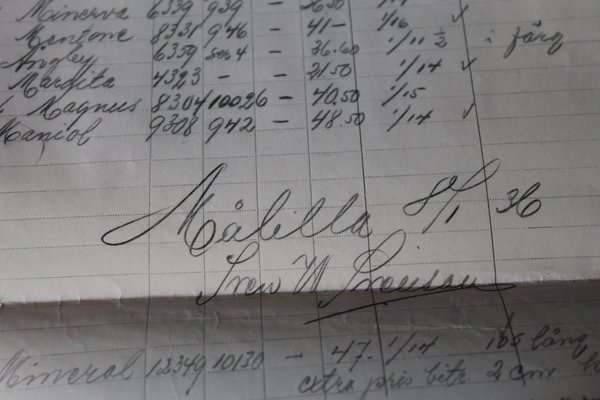 Minerva 6339 939 - 36.50 1/14
Mentone 8331 946 - 41- 1/16 ✓
Angley 6339 - 36.60 1/11 ½ i färg
Margita 4323 - - 31.50 1/14 ✓
Magnus 8304 10026 - 40.50 1/15
9308 942 - 48.50 1/14 ✓
Målilla 8/1 36
Sven W Svensson
Mineral 12349 10130 - 47. 1/14 lång
extra pris bitr 2 cm